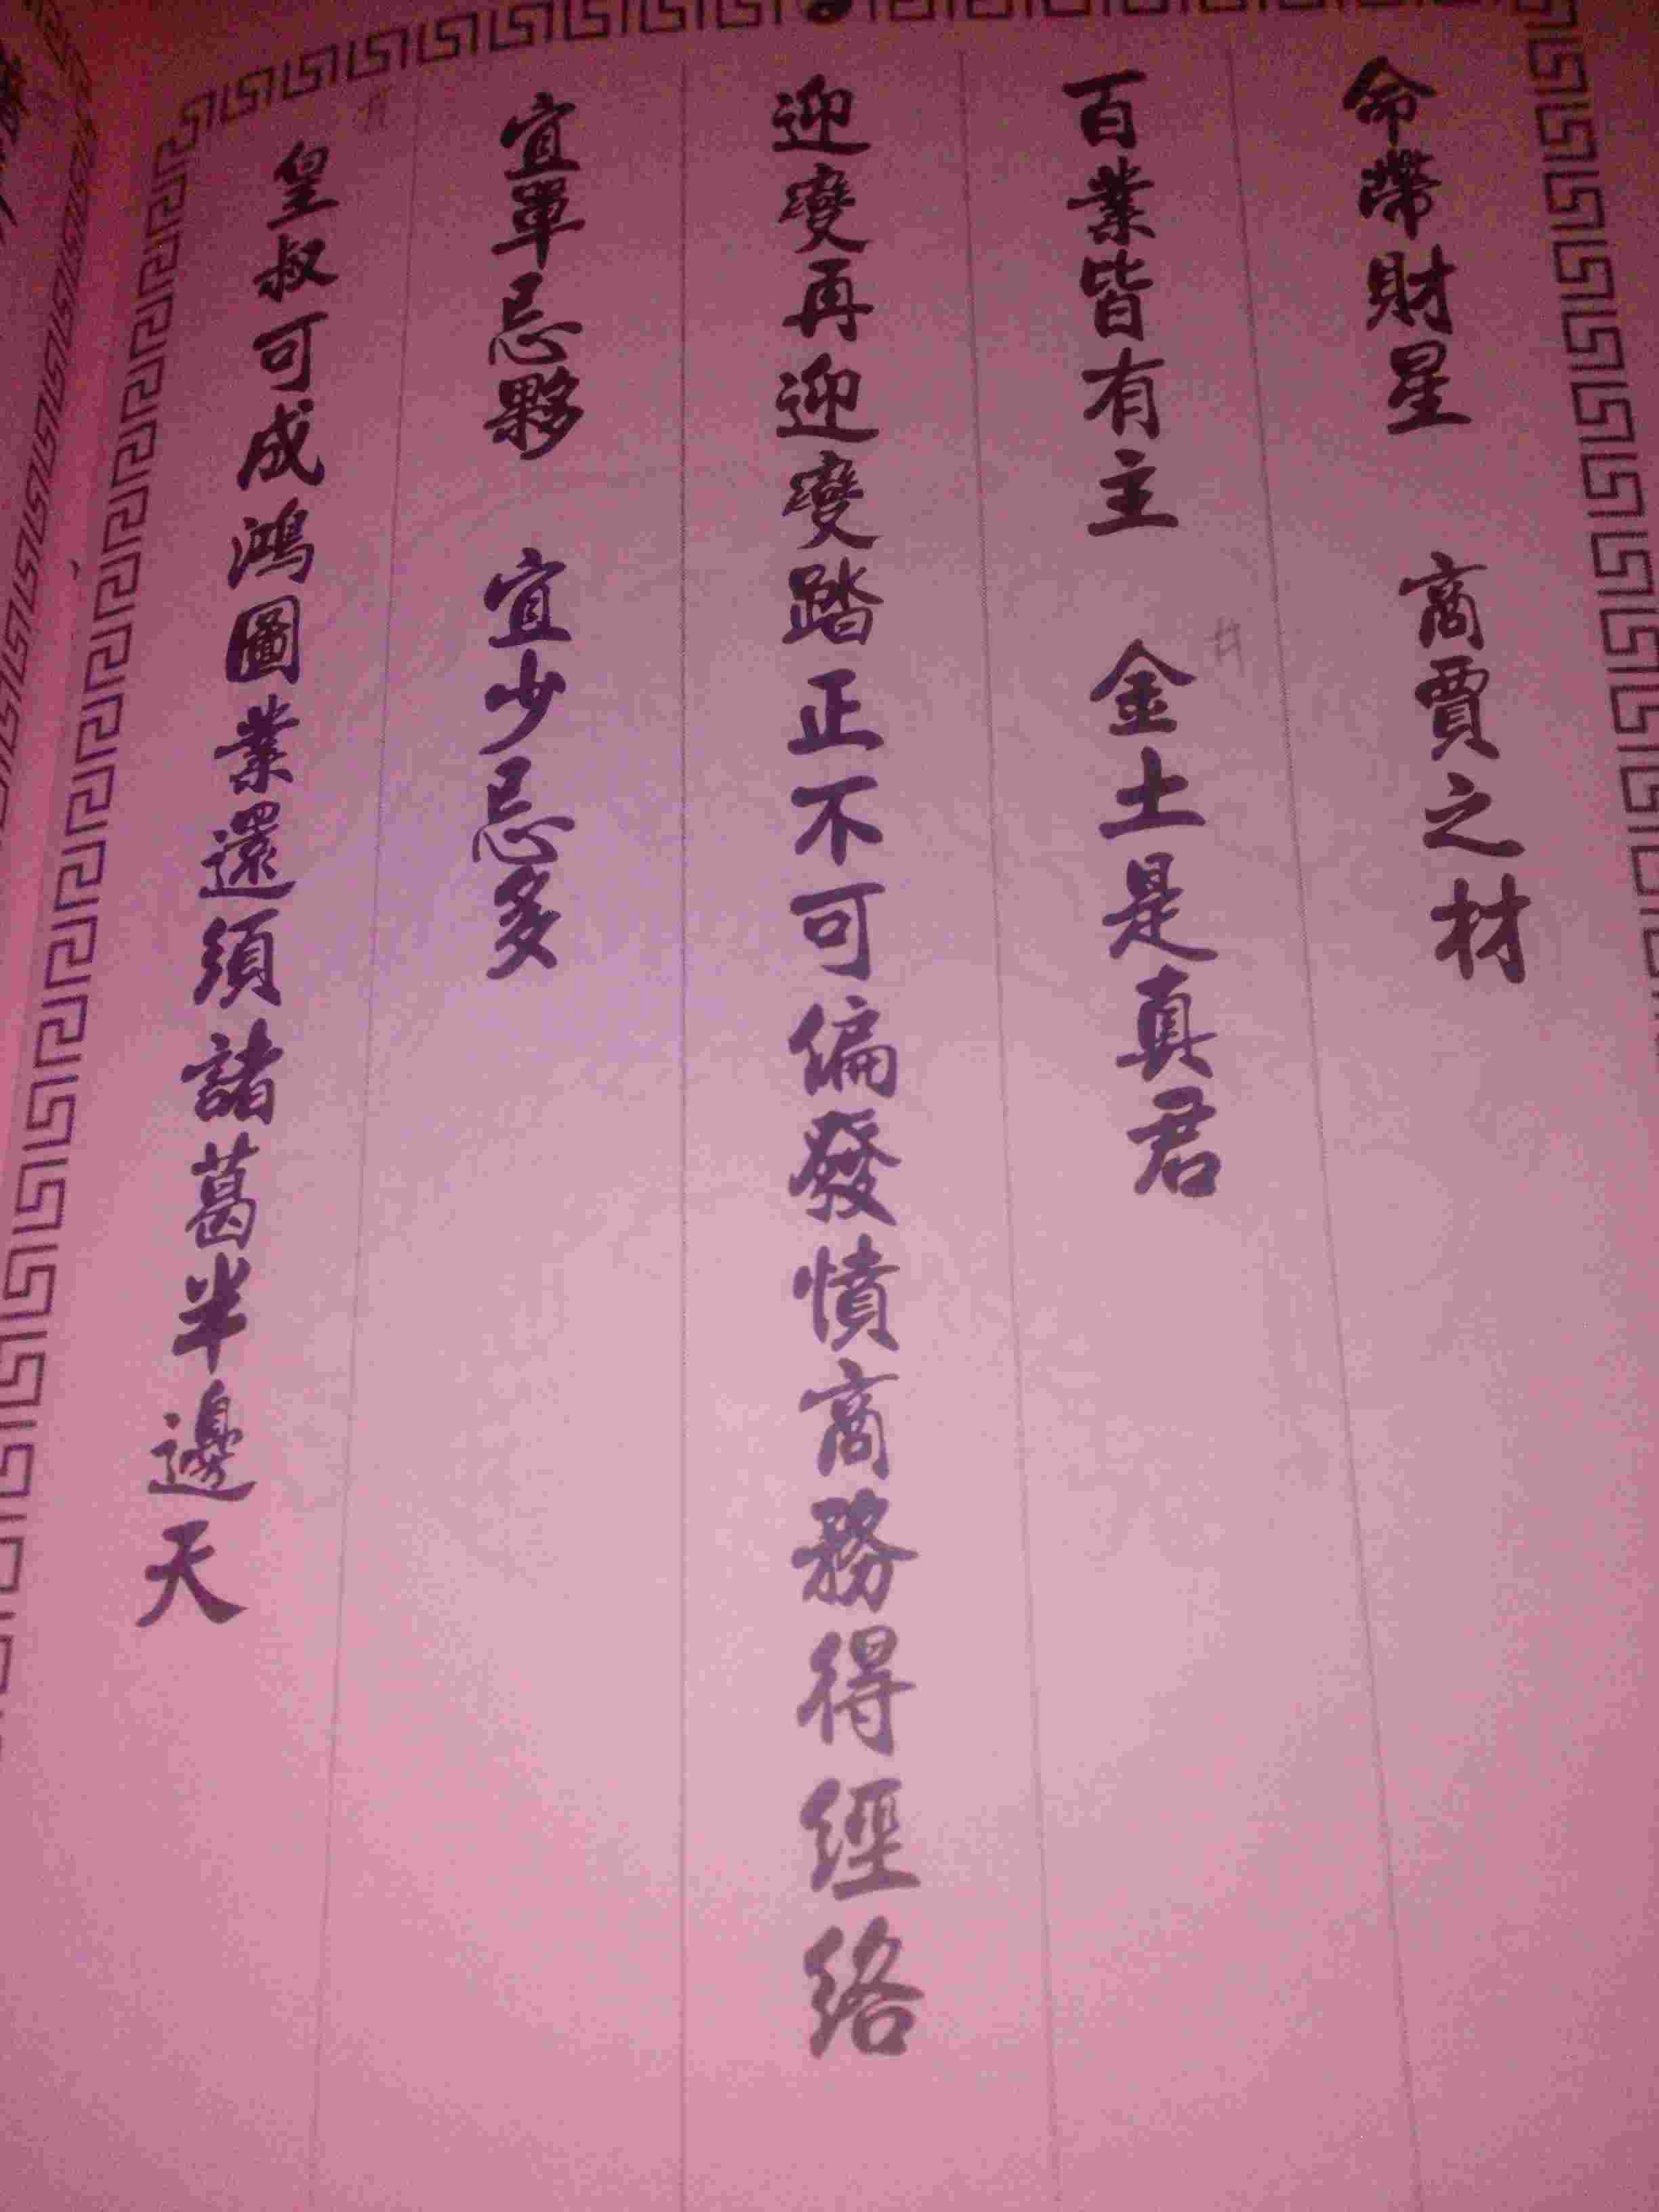 命帶財星　商賈之材
百業皆有主　金土是真君
迎變再迎變踏正不可偏發憤商務得經絡
宜單忌夥　宜少忌多
皇叔可成鴻圖業還須諸葛半邊天